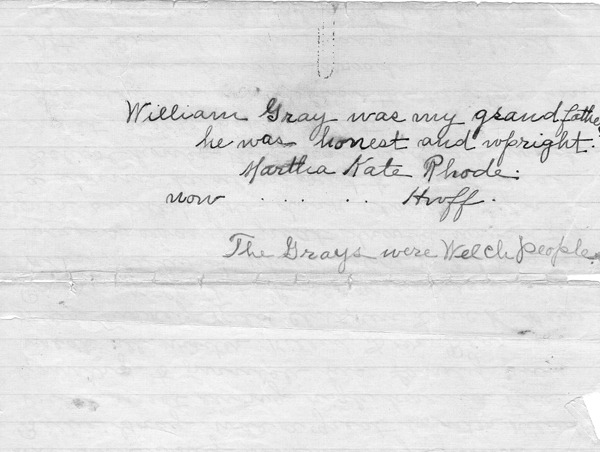 William Gray was my grandfather
he was honest and upright.
Martha Kate Rhode.
now . . . . . Huff.
The Grays were Welch people.